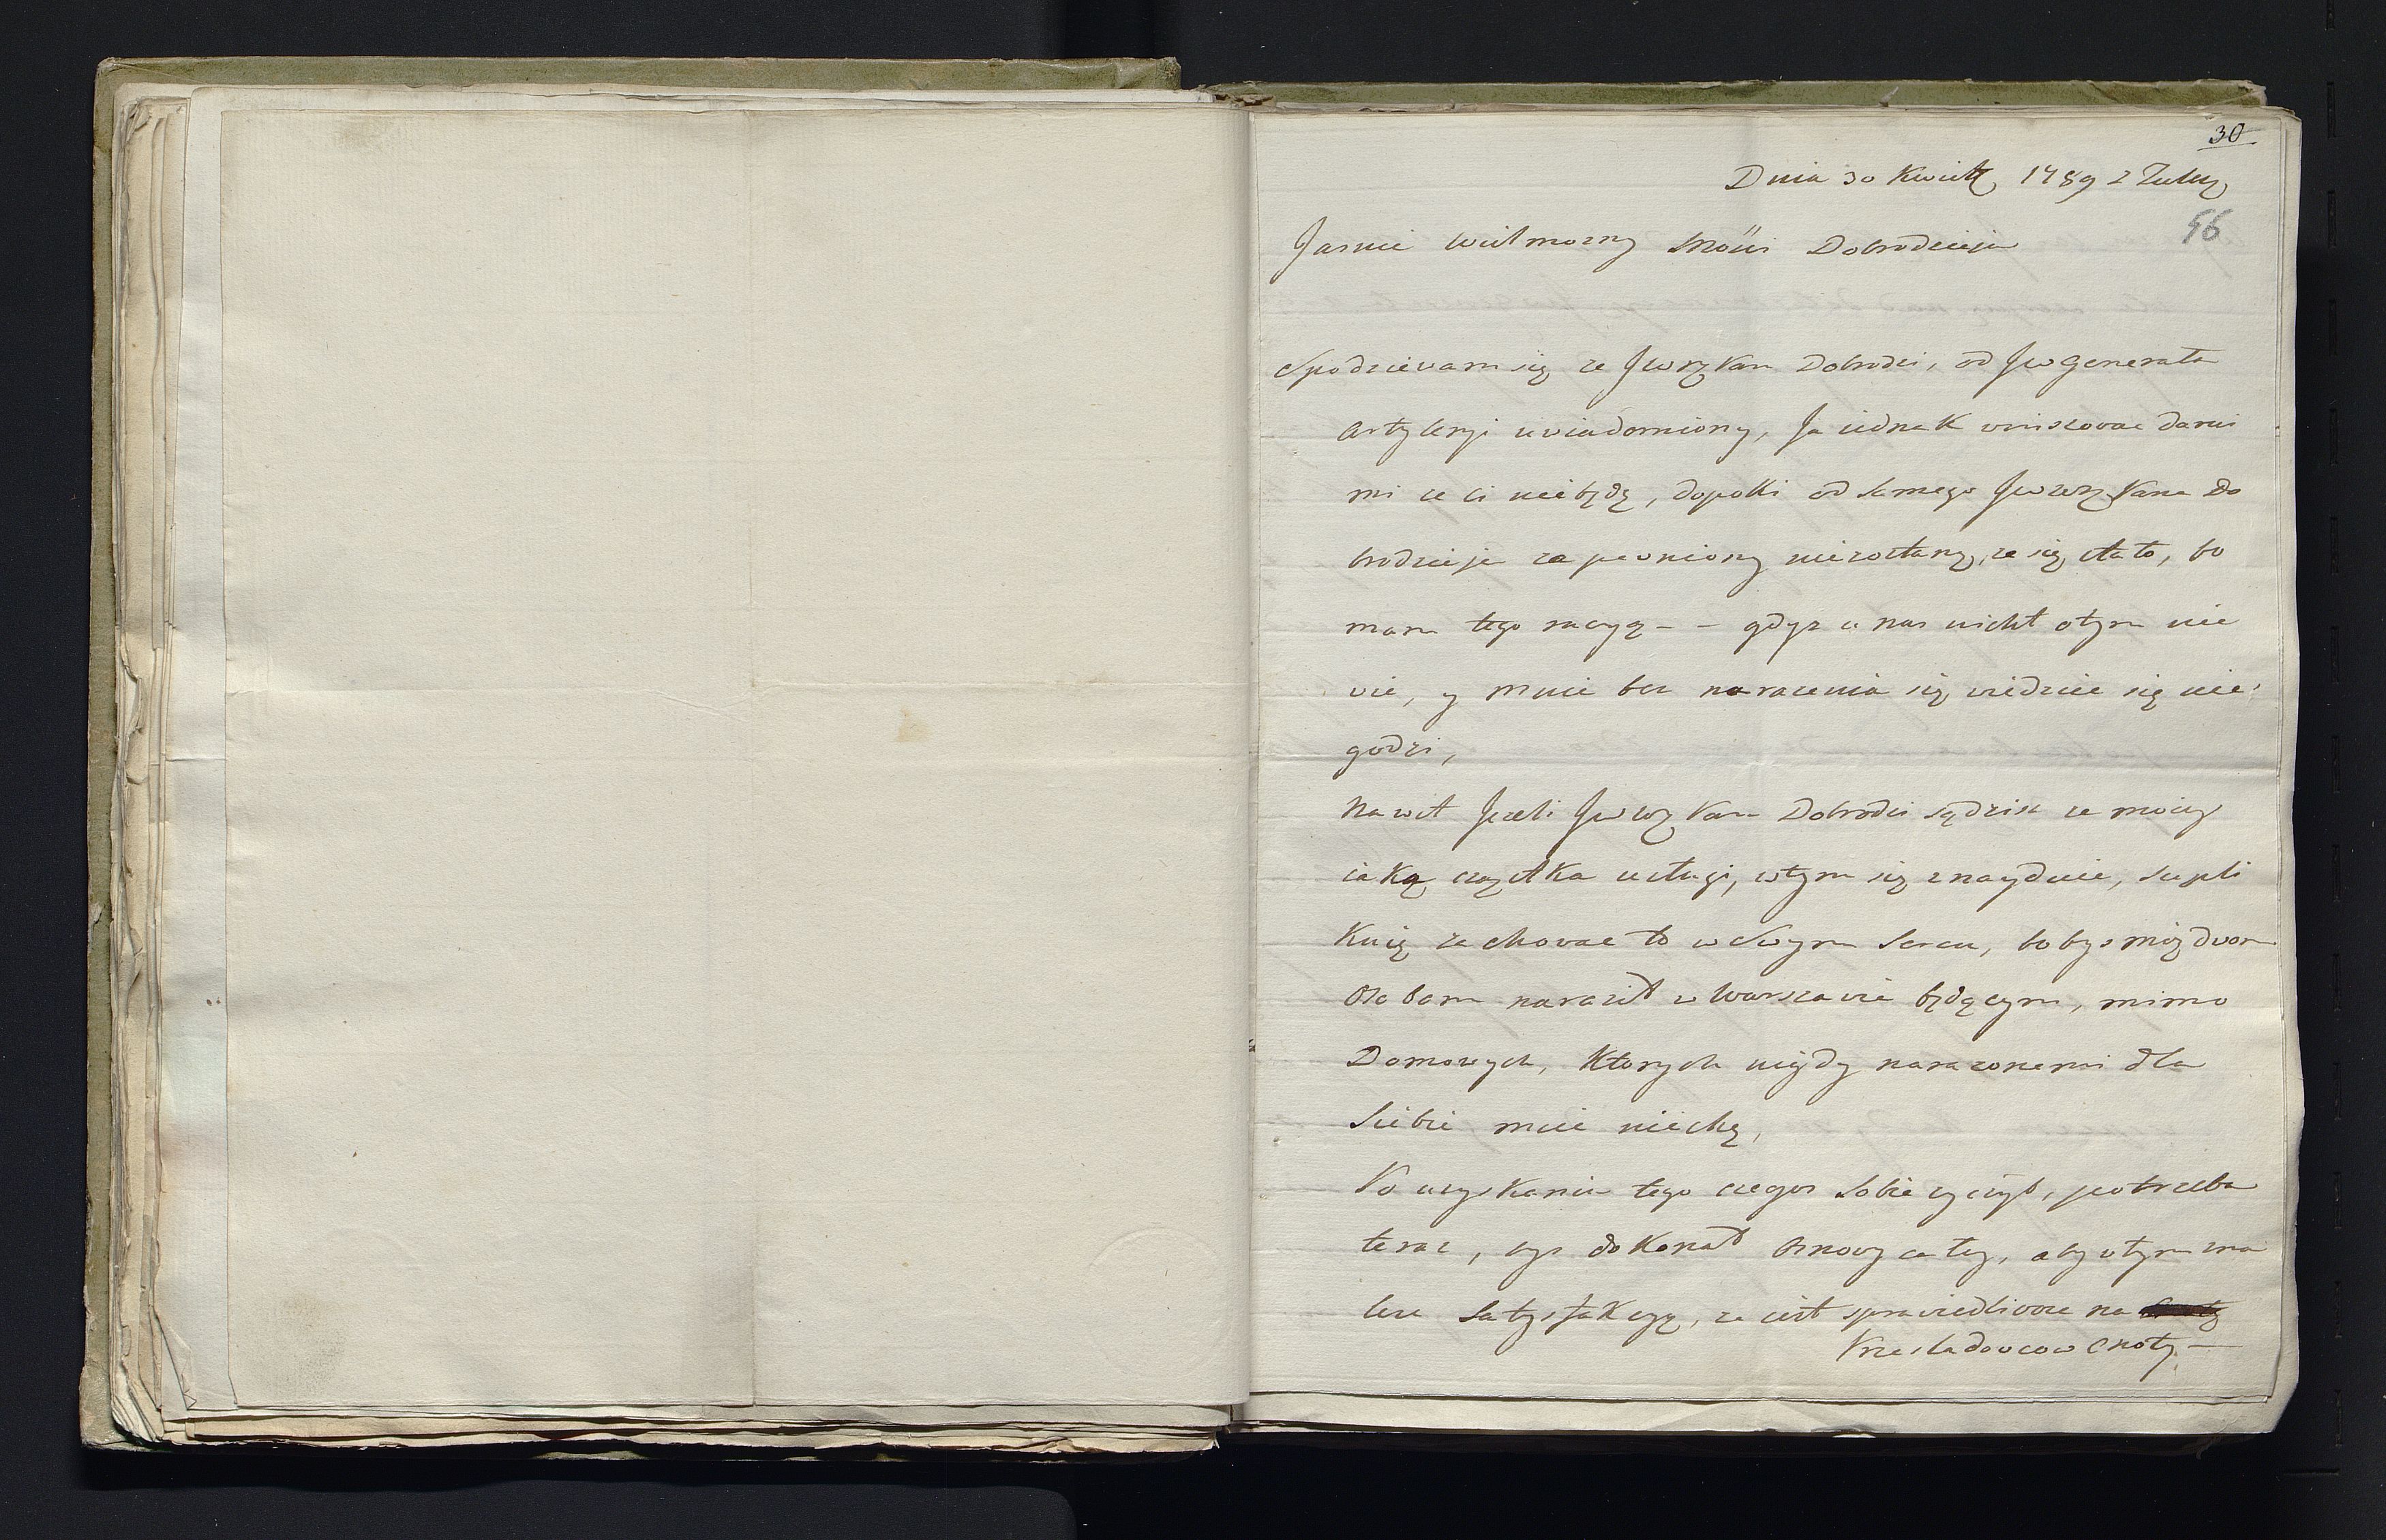 30
Dnia 30 Kwiet 1789 z Tulcz
56
Jasnie Wielmozny Mości Dobrodzieju
Spodzievam się ze JWWPan Dobrodzi, od JW Generała
Artyleryi uviadomiony, Ja iednak vinszovac daruie
mi ze Ci niebędę, dopoki od samego JWWPana Do
brodzieja zapevniony niezostanę, ze się stało, bo
mam tego racyą - - gdyz u nas nicht otym nie
vie, y mnie bez narazenia się viedzie się nie
godzi,
Nawet Jezeli JWWPan Dobrodzi sądzisz ze moiey
iaką cząstka usługi, wtym się znayduie, supli
Kuię zachovac to w Swym Sercu, bobys mię dvom
Osobom naraził w Warszavie będącym, mimo
Domowych, Ktorych nigdy narazonemi dla
Siebie miec niechcę,
Po uzyskaniu tego czegos Sobie zyczył, potrzeba
teraz, bys dokonał Osnovy całey, aby vtym zna
lesc Satysfakcyą, ze iest spraviedlivosc na
Przesladovcow Cnoty. —